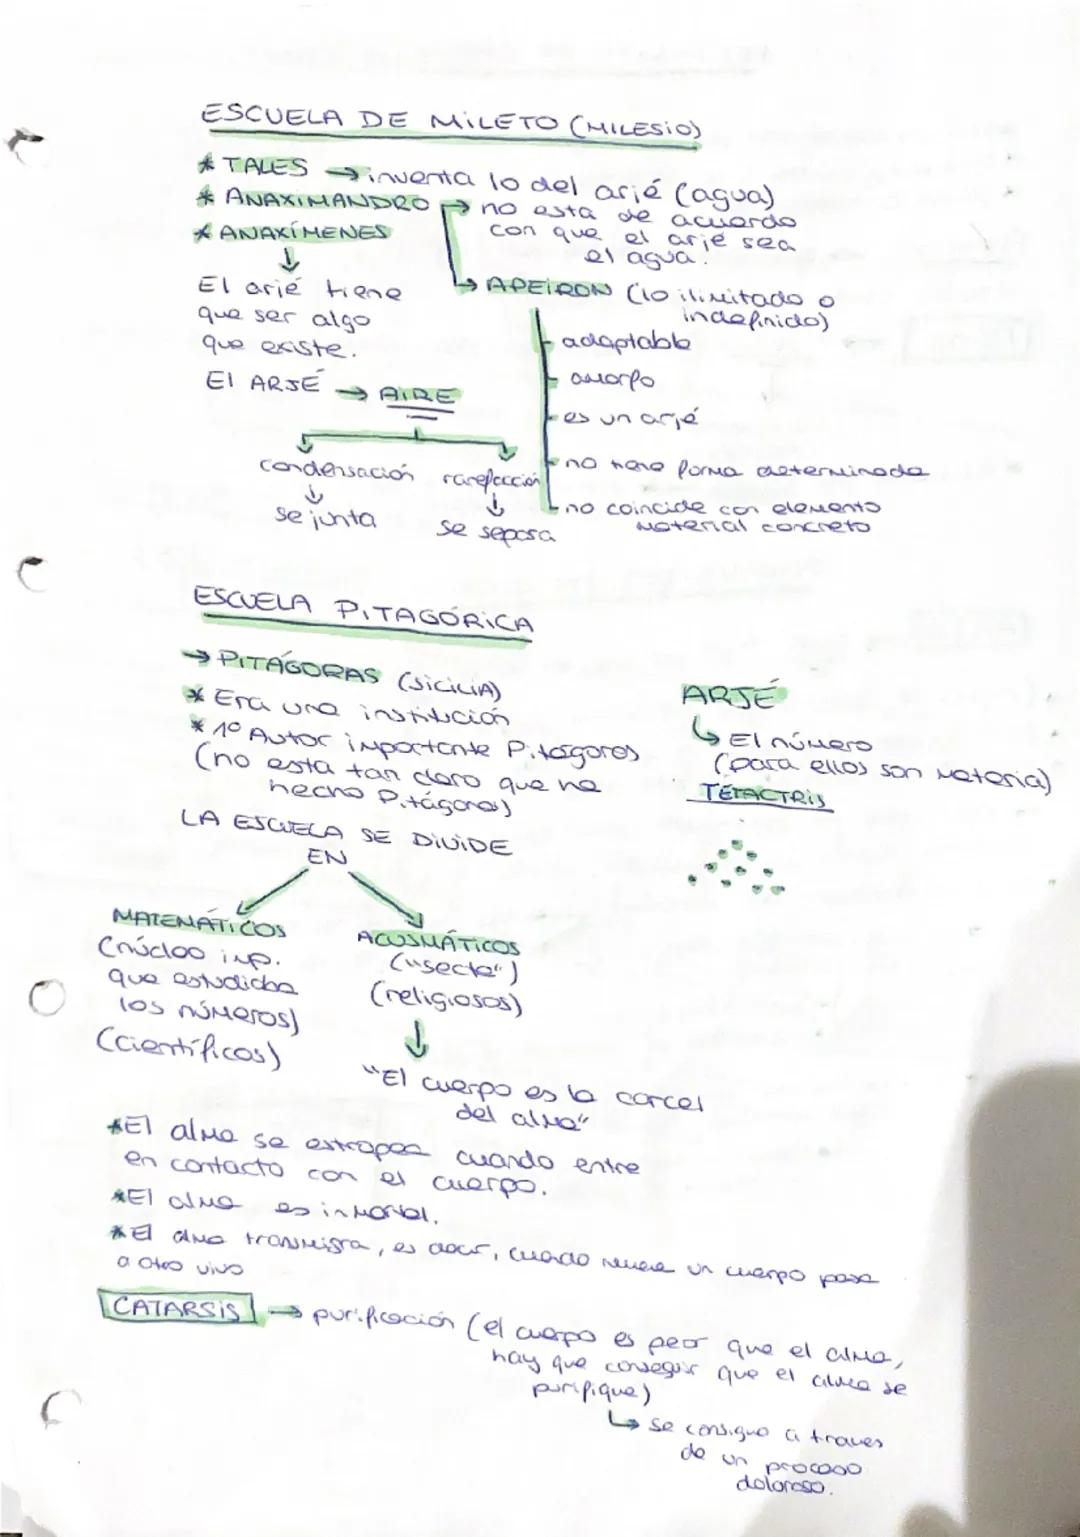 ESCUELA DE MILETO (MILESIO)
* TALES → inventa lo del arjé (agua)
* ANAXIMANDRO → no esta de acuerdo
con que el arjé sea
el agua.
* ANAXÍMENES
↓
El arjé tiene
que ser algo
que existe.
El ARJÉ → AIRE
condensación
↓
se junta
rarefacción
↓
se separa
→ APEIRON (lo ilimitado o
indefinido)
- adaptable
- amorfo
- es un arjé
- no tiene forma determinada
- no coincide con elemento
material concreto
ESCUELA PITAGÓRICA
→ PITÁGORAS (SICILIA)
* Era una institución
* 1º Autor importante Pitágoras
(no esta tan claro que ha
hecho Pitágoras)
LA ESCUELA SE DIVIDE
EN
MATEMÁTICOS
(núcleo imp.
que estudiaba
los números)
(científicos)
ACUSMÁTICOS
("secta")
(religiosos)
↓
"El cuerpo es la carcel
del alma"
ARJÉ
↳ El número
(para ellos son materia)
TETACTRIS
*El alma se estropea cuando entre
en contacto con el cuerpo.
*El alma es inmortal.
*El alma transmigra, es decir, cuando muere un cuerpo pasa
a otro vivo
CATARSIS → purificación (el cuerpo es peor que el alma,
hay que conseguir que el alma se
purifique)
↳ se consigue a traves
de un proceso
doloroso.